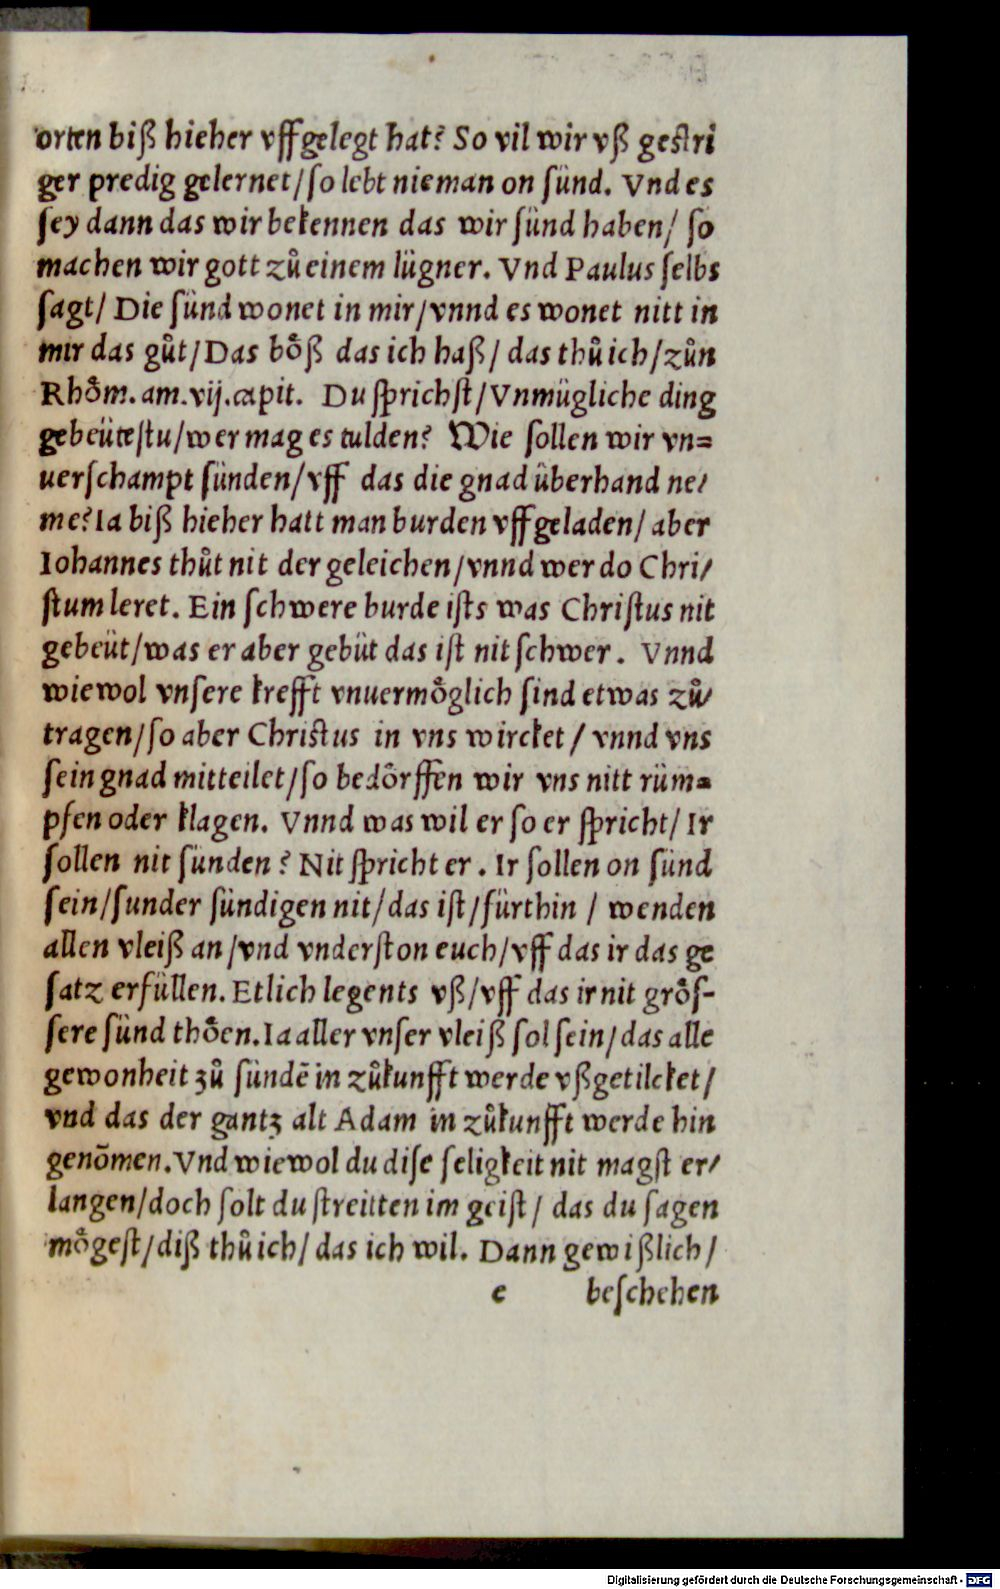 orten biß hieher vffgelegt hat? So vil wir vß gestri
ger predig gelernet/ſo lebt nieman on ſünd. Vnd es
ſey dann das wir bekennen das wir ſünd haben/ ſo
machen wir gott zuͦ einem lügner. Vnd Paulus ſelbs
ſagt/ Die ſünd wonet in mir/vnnd es wonet nitt in
mir das guͦt/Das boͤß das ich haß/ das thuͦ ich/zuͦn
Rhoͤm. am.vij.capit. Du ſprichſt/Vnmügliche ding
gebeüteſtu/wer mag es tulden? Wie ſollen wir vn=
uerſchampt ſünden/vff das die gnad überhand ne/
me? Ia biß hieher hatt man burden vffgeladen/ aber
Iohannes thuͦt nit der geleichen/vnnd wer do Chri/
ſtum leret. Ein ſchwere burde iſts was Chriſtus nit
gebeüt/was er aber gebüt das iſt nit ſchwer. Vnnd
wiewol vnſere krefft vnuermoͤglich ſind etwas zuͦ/
tragen/ſo aber Chriſtus in vns wircket/ vnnd vns
ſein gnad mitteilet/ſo bedoͤrffen wir vns nitt rüm=
pfen oder klagen. Vnnd was wil er ſo er ſpricht/ Ir
ſollen nit ſünden? Nit ſpricht er. Ir ſollen on ſünd
ſein/ſunder ſündigen nit/das iſt/fürthin / wenden
allen vleiß an/vnd vnderſton euch/vff das ir das ge
ſatz erfüllen. Etlich legents vß/vff das ir nit groͤſ-
ſere ſünd thoͤen. Ia aller vnſer vleiß ſol ſein/das alle
gewonheit zuͦ ſündē in zuͦkunfft werde vßgetilcket/
vnd das der gantz alt Adam in zuͦkunfft werde hin
genōmen. Vnd wiewol du diſe ſeligkeit nit magſt er/
langen/doch ſolt du ſtreitten im geiſt/ das du ſagen
moͤgeſt/diß thuͦ ich/ das ich wil. Dann gewißlich/
e beſchehen
Digitalisierung gefördert durch die Deutsche Forschungsgemeinschaft - DFG